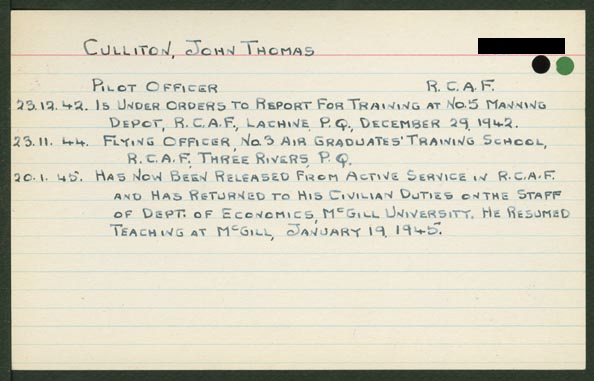 CULLITON, JOHN THOMAS
PILOT OFFICER R.C.A.F.
23.12.42. IS UNDER ORDERS TO REPORT FOR TRAINING AT NO.5 MANNING
DEPOT, R.C.A.F., LACHINE, P.Q., DECEMBER 29, 1942.
23.11.44. FLYING OFFICER, NO.3 AIR GRADUATES' TRAINING SCHOOL,
R.C.A.F, THREE RIVERS, P.Q.
20.1.45. HAS NOW BEEN RELEASED FROM ACTIVE SERVICE IN R.C.A.F.
AND HAS RETURNED TO HIS CIVILIAN DUTIES ON THE STAFF
OF DEPT. OF ECONOMICS, MCGILL UNIVERSITY. HE RESUMED
TEACHING AT MCGILL, JANUARY 19, 1945.